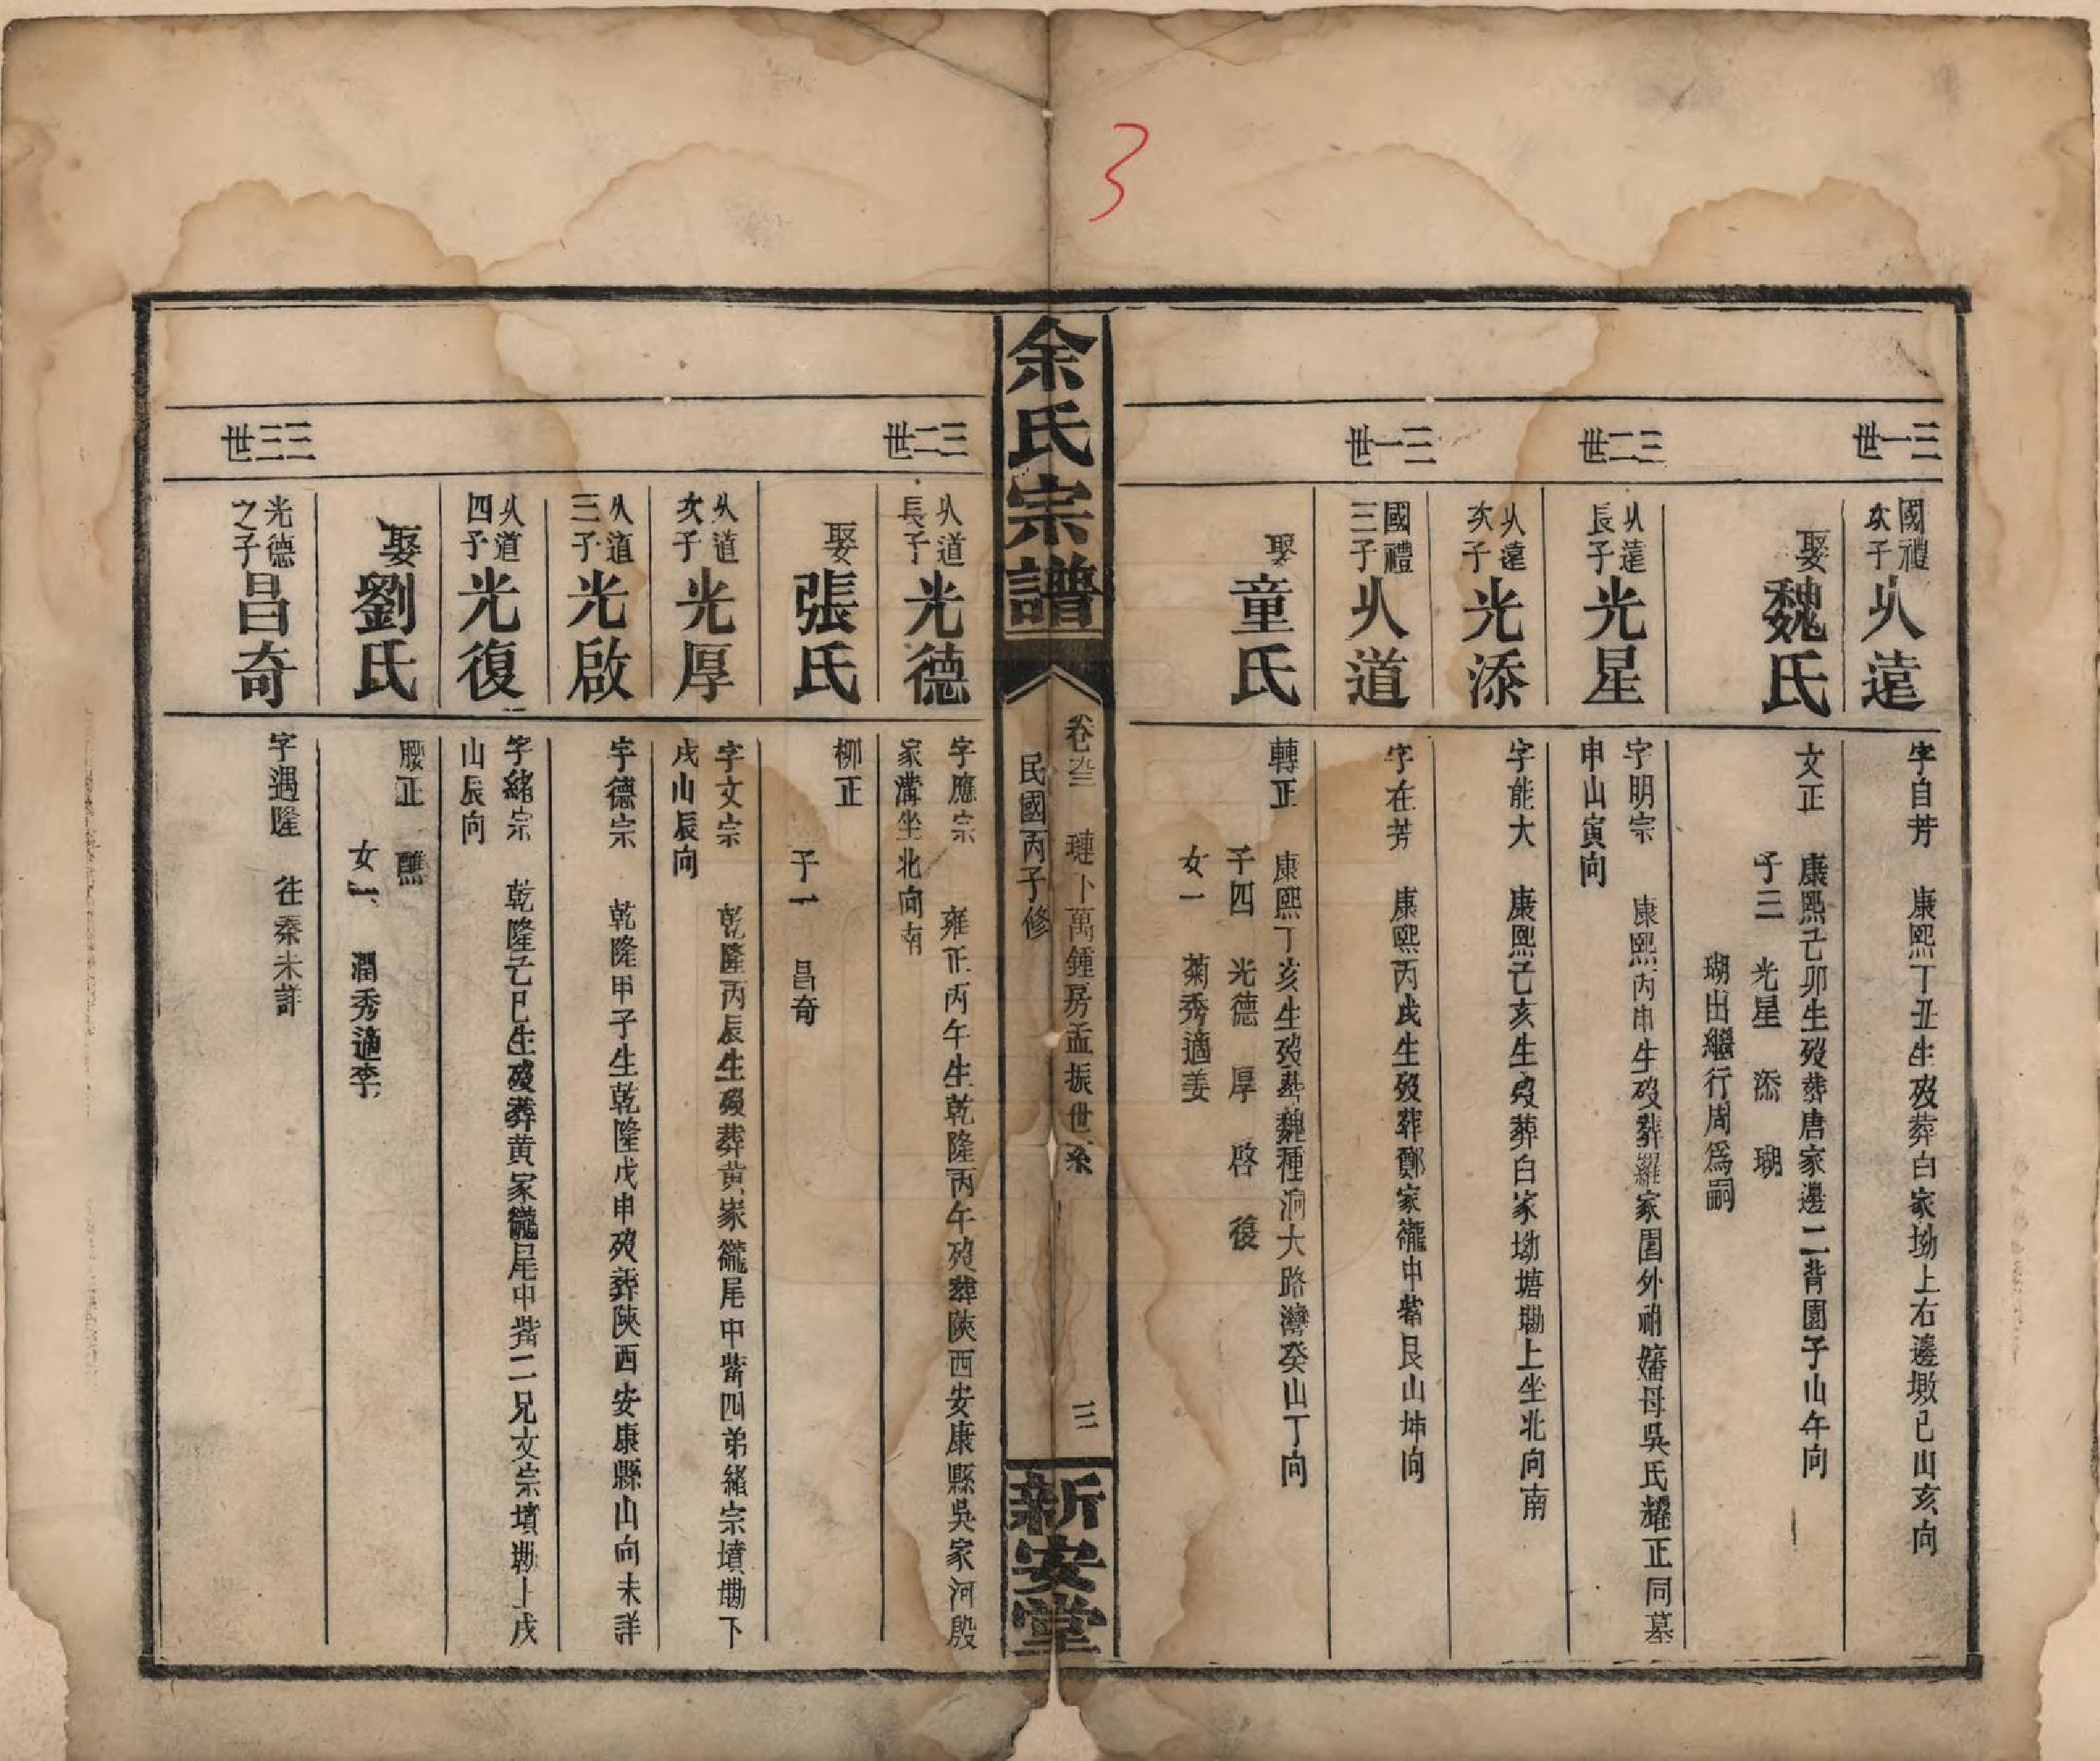 3
三一世
國禮次子
㕥遠
字自芳 康熙丁丑生歿葬白家坳上右邊墩巳山亥向
娶魏氏
文正 康熙己卯生歿葬唐家邊二背園子山午向
子三 光星 添 瑚
瑚出繼行周爲嗣
三二世
㕥遠長子
光星
字明宗 康熙丙申生歿葬羅家園外祔嬸母吳氏耀正同墓
申山寅向
㕥遠次子
光添
字能大 康熙己亥生歿葬白家坳塘墈上坐北向南
三一世
國禮三子
㕥道
字在芳 康熙丙戌生歿葬鄭家䆍中嘴艮山坤向
娶童氏
轉正 康熙丁亥生歿葬魏種洞大路灣癸山丁向
子四 光德 厚 啓 復
女一 菊秀適姜
余氏宗譜
卷叁 璉卜萬鍾房孟振世系 三
民國丙子修
新安堂
三二世
㕥道長子
光德
字應宗 雍正丙午生乾隆丙午歿葬陝西安康縣吳家河殷
家溝坐北向南
娶張氏
柳正
子一 昌奇
㕥道次子
光厚
字文宗 乾隆丙辰生歿葬黄家䆍尾中嘴四弟緒宗墳墈下
戌山辰向
㕥道三子
光啟
字德宗 乾隆甲子生乾隆戊申歿葬陝西安康縣山向未詳
㕥道四子
光復
字緒宗 乾隆己巳生歿葬黄家䆍尾中嘴二兄文宗墳墈上戌
山辰向
娶劉氏
腰正 醮
女一 潤秀適李
三三世
光德之子
昌奇
字遇隆 往秦未詳